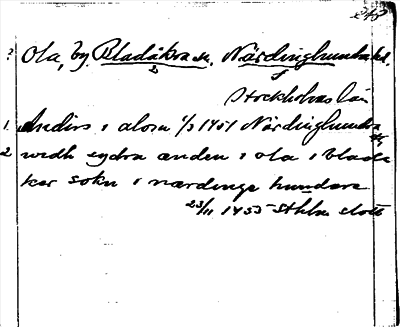 ? Ola, by, Bladåkra sn, Närdinghundra hd.
Stockholms län
1. Anders i alosu 1/3 1451 Närdinghundra
2 wedh sydra ænden i ola i blada
ker sokn i nærdinge hundare
23/11 1455 Sthlm